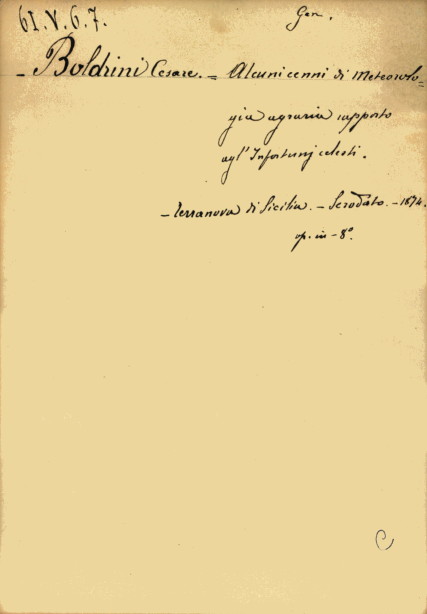 61.V.6.7.
Gen.
- Boldrini Cesare. = Alcuni cenni di Meteorolo=
gia agraria rapporto
agl' Infortunj celesti.
- Terranova di Sicilia. - Scrodato. - 1874.
op. in - 8°.